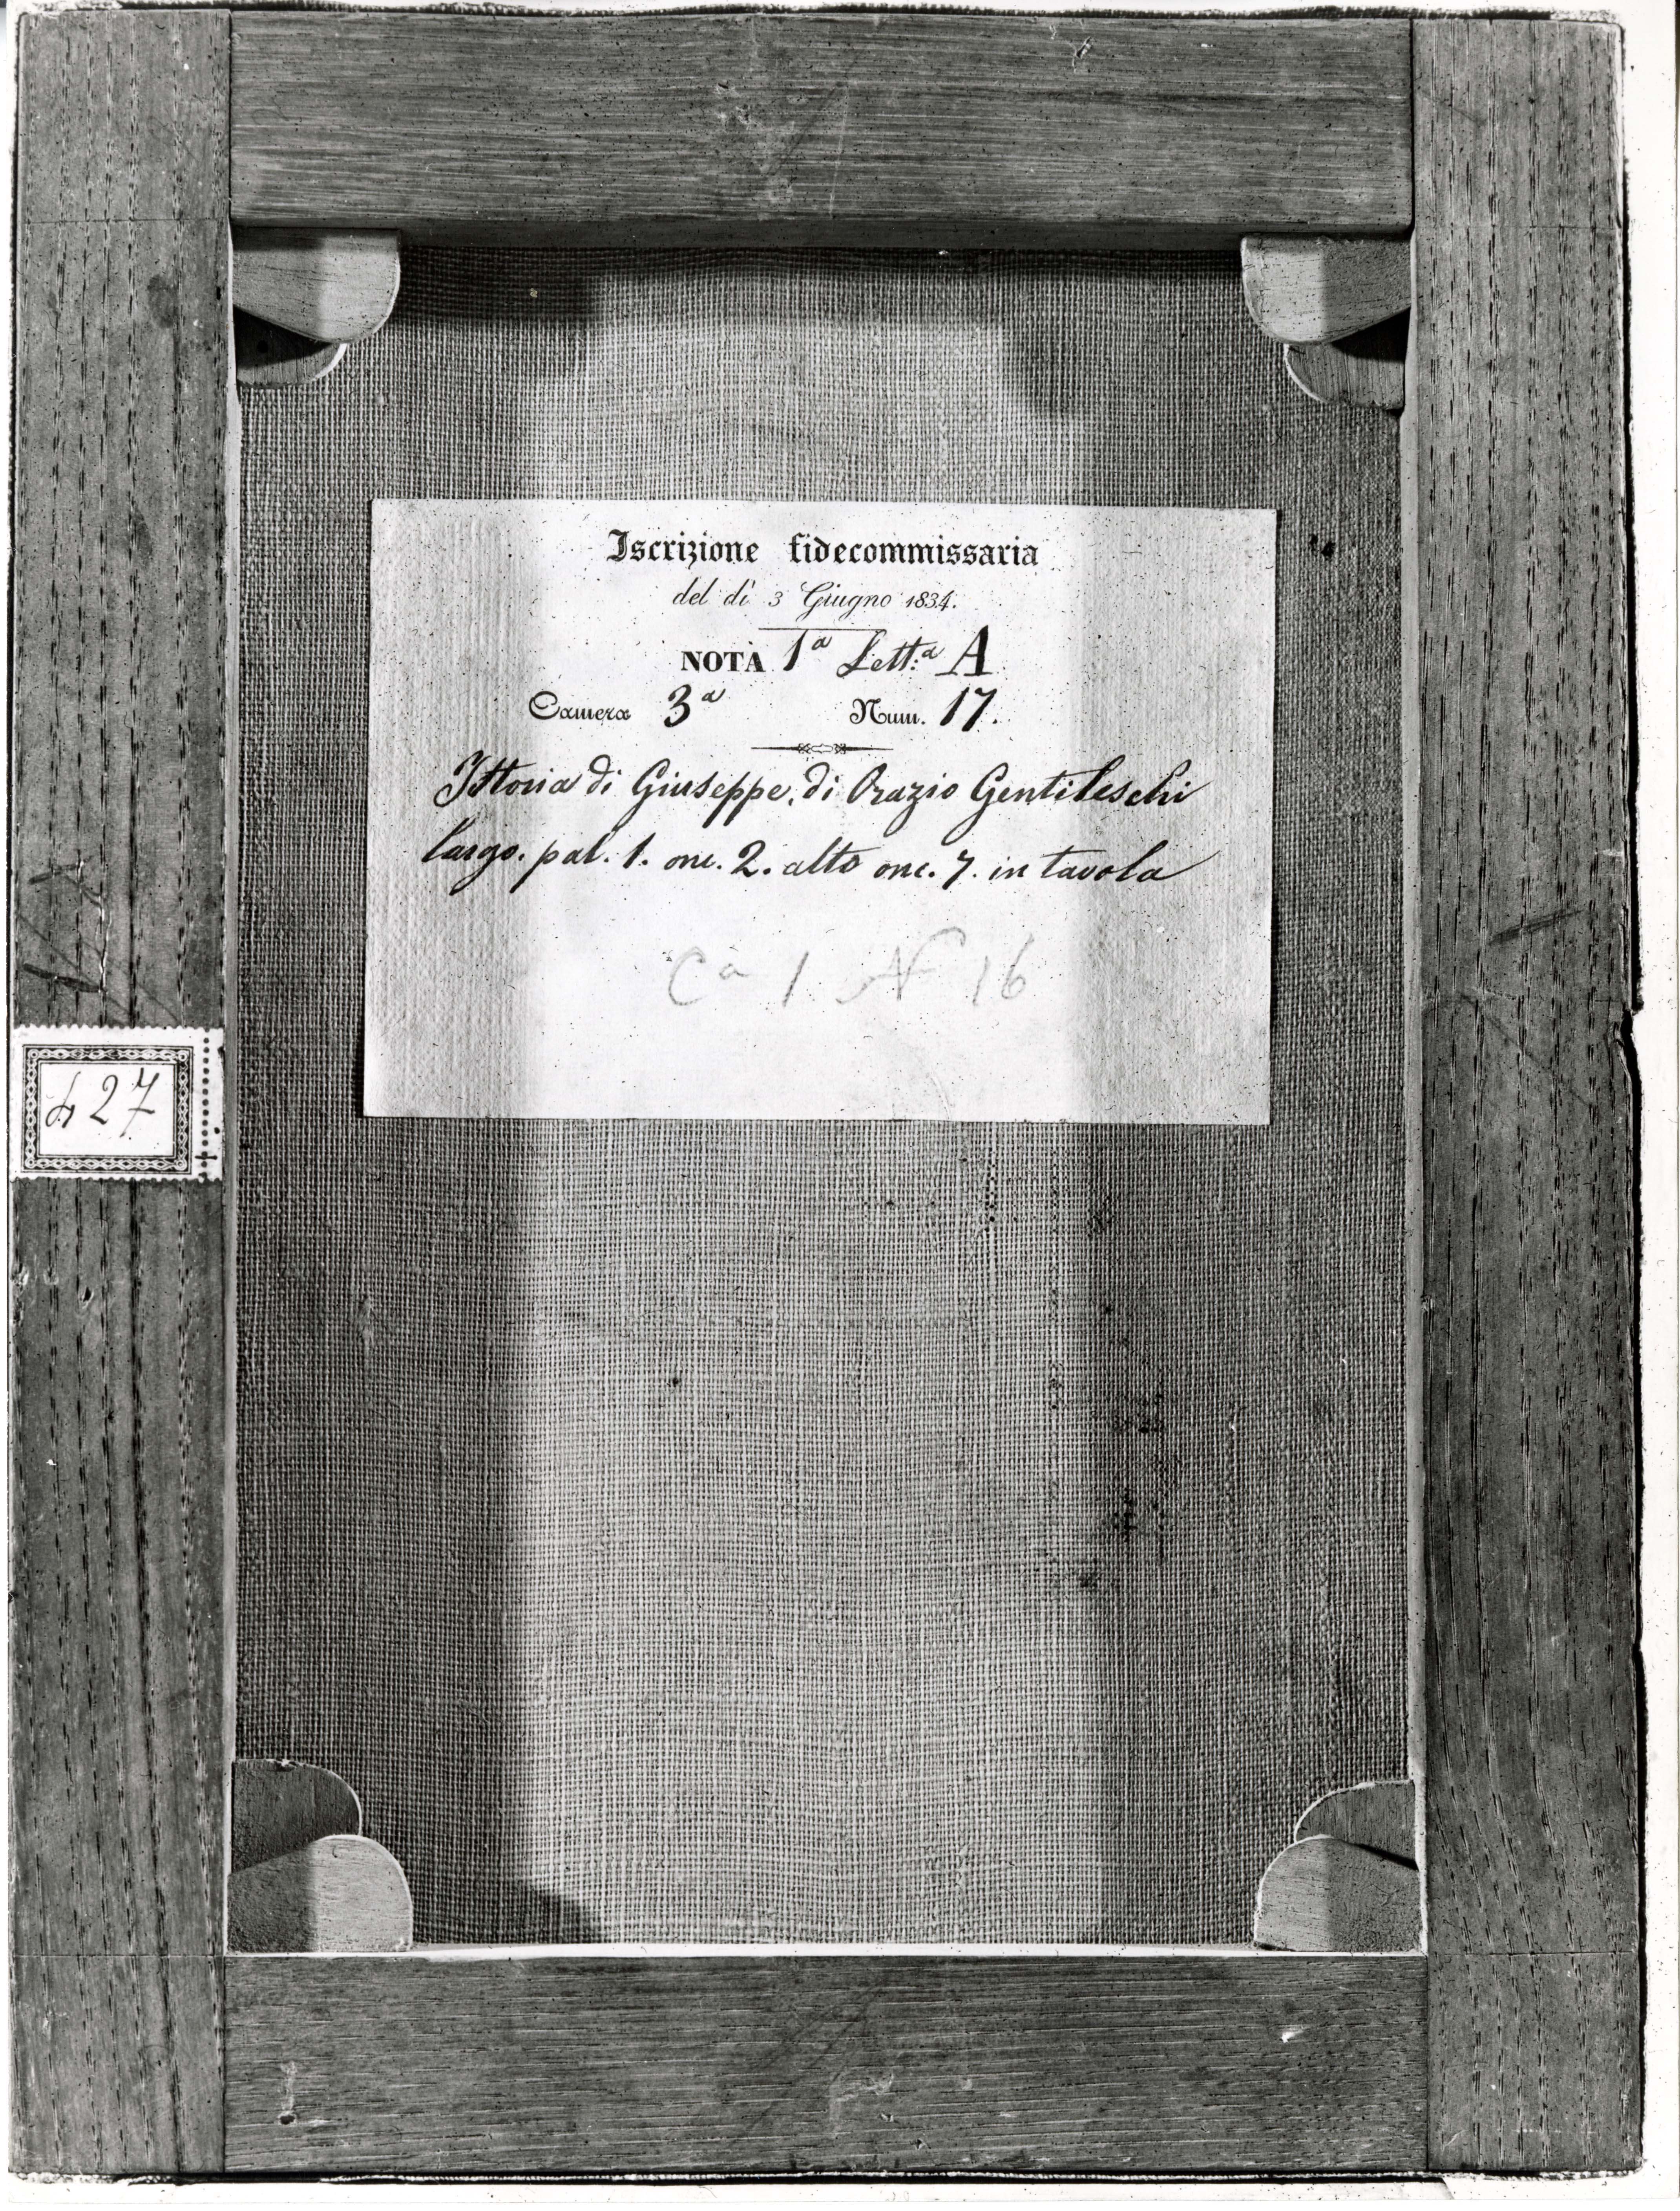 Iscrizione fidecommissaria
del dì 3 Giugno 1834.
NOTA 1ª Lett.ª A
Camera 3ª Num. 17.
Istoria di Giuseppe, di Orazio Gentileschi
largo. pal. 1. onc. 2. alto onc. 7. in tavola
Cª 1 N 16
427